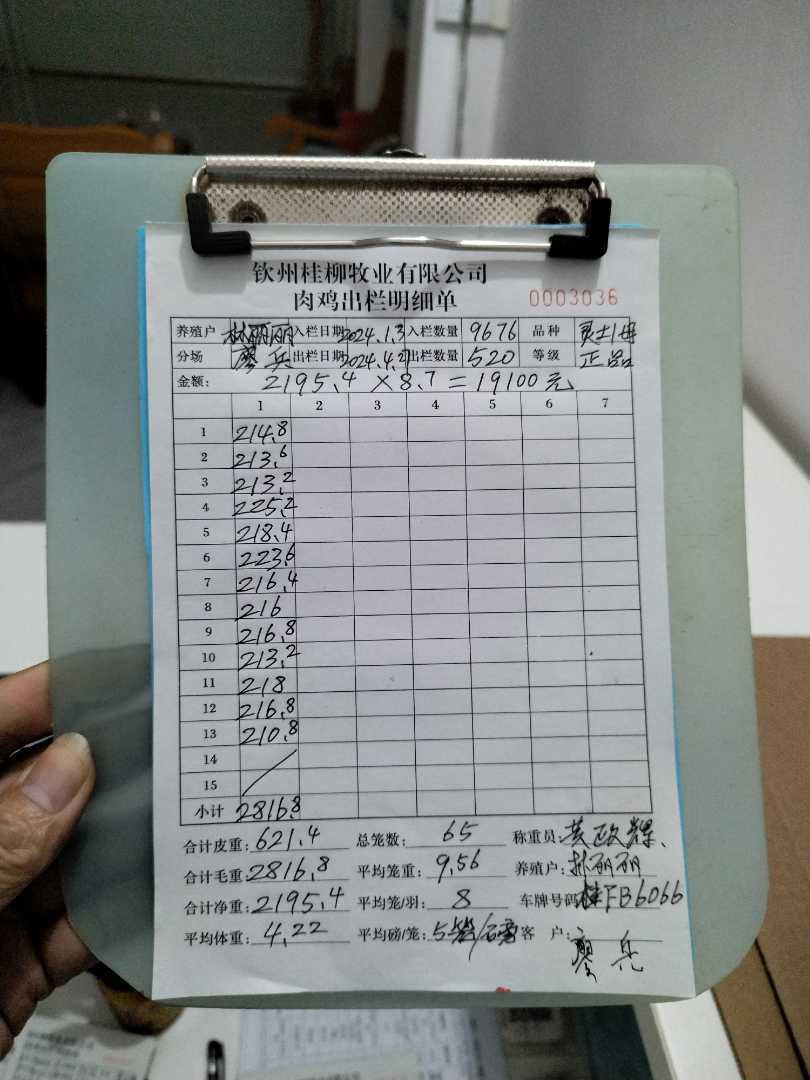 钦州桂柳牧业有限公司
肉鸡出栏明细单 0003036
养殖户 林丽丽 入栏日期 2024.1.3 入栏数量 9676 品种
分场 廖兵 出栏日期 2024.4.2 出栏数量 520 等级 正品
金额: 2195.4 × 8.7 = 19100元
1 2 3 4 5 6 7
1 214.8
2 213.6
3 213.2
4 225.2
5 218.4
6 223.6
7 216.4
8 216
9 216.8
10 213.2
11 218
12 216.8
13 210.8
14
15
小计 2816.8
合计皮重: 621.4 总笼数: 65 称重员: 黄政辉
合计毛重: 2816.8 平均笼重: 9.56 养殖户: 林丽丽
合计净重: 2195.4 平均笼/羽: 8 车牌号码 桂FB6066
平均体重: 4.22 平均磅/笼: 5 客 户:
廖兵